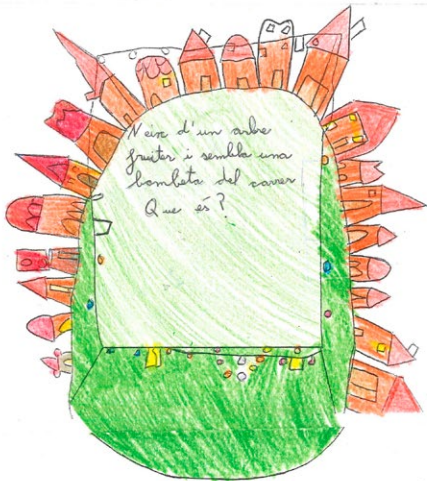 Neix d'un arbre
fruiter i sembla una
bombeta del carrer
Que és?